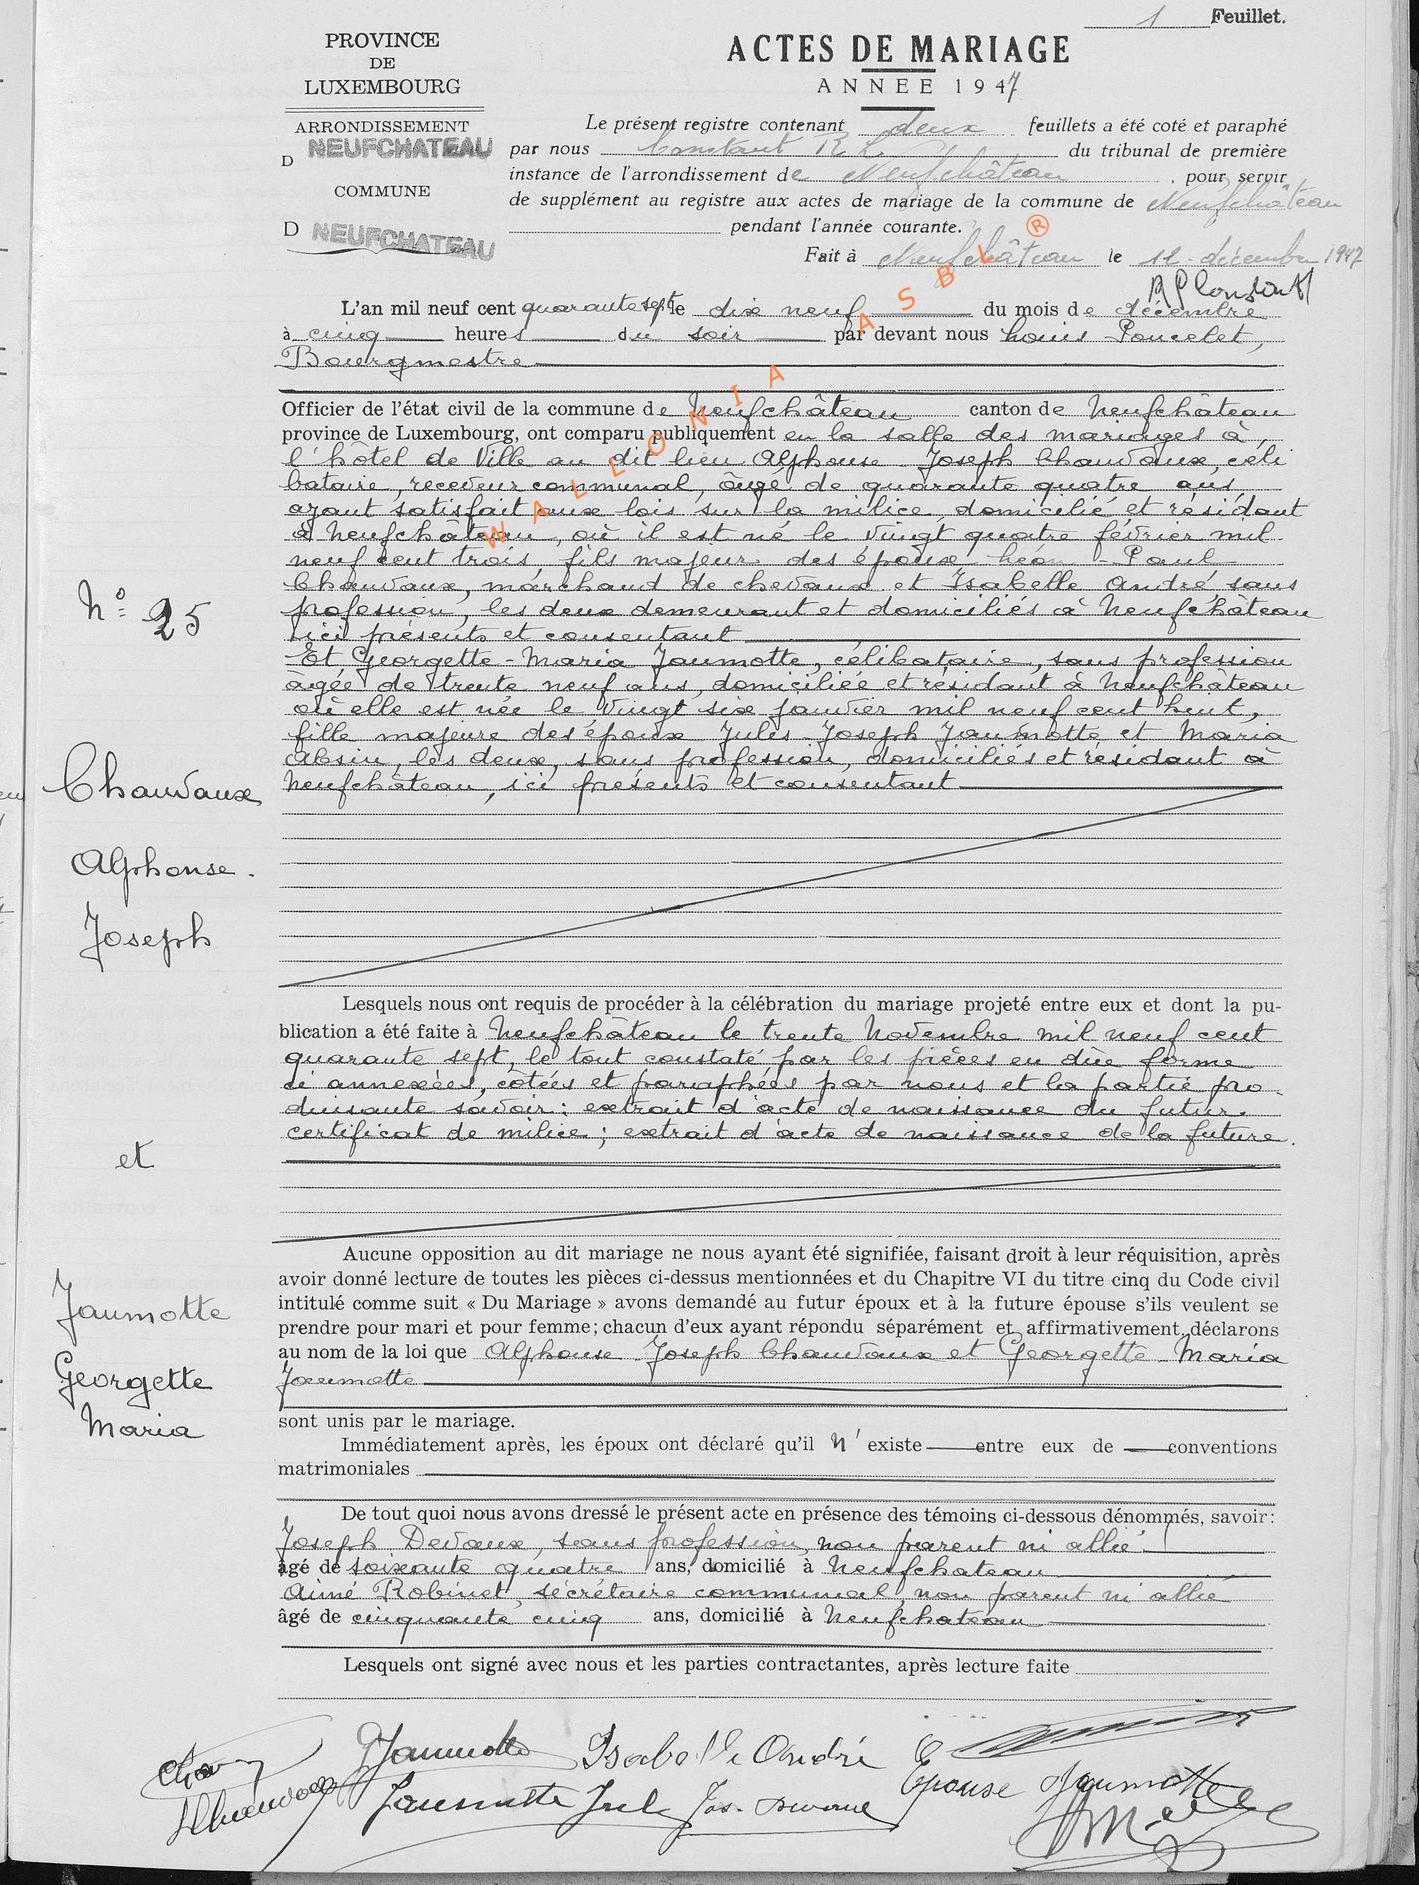 1 Feuillet.
PROVINCE
DE
LUXEMBOURG
ARRONDISSEMENT
D NEUFCHATEAU
COMMUNE
D NEUFCHATEAU
ACTES DE MARIAGE
ANNEE 1947
Le présent registre contenant deux feuillets a été coté et paraphé
par nous Constant du tribunal de première
instance de l'arrondissement de Neufchâteau, pour servir
de supplément au registre aux actes de mariage de la commune de Neufchâteau
pendant l'année courante.
Fait à Neufchâteau le 12 décembre 1947
WALLONIA ASBL ®
L'an mil neuf cent quarante sept le dix neuf du mois de décembre
à cinq heures du soir par devant nous Louis Poncelet,
Bourgmestre
Officier de l'état civil de la commune de Neufchâteau canton de Neufchâteau
province de Luxembourg, ont comparu publiquement en la salle des mariages à
l'hôtel de Ville au dit lieu Alphonse Joseph Chauvaux, céli
bataire, receveur communal, âgé de quarante quatre ans,
ayant satisfait aux lois sur la milice, domicilié et résidant
à Neufchâteau, où il est né le vingt quatre février mil
neuf cent trois, fils majeur des époux Léon-Paul
Chauvaux, marchand de chevaux et Isabelle André, sans
profession, les deux demeurant et domiciliés à Neufchâteau
ici présents et consentant
Et Georgette-Maria Jaumotte, célibataire, sans profession
âgée de trente neuf ans, domiciliée et résidant à Neufchâteau
où elle est née le vingt six janvier mil neuf cent huit,
fille majeure des époux Jules Joseph Jaumotte et Maria
Absin, les deux, sans profession, domiciliés et résidant à
Neufchâteau, ici présents et consentant
N° 25
Chauvaux
Alphonse-
Joseph
et
Jaumotte
Georgette
Maria
Lesquels nous ont requis de procéder à la célébration du mariage projeté entre eux et dont la pu-
blication a été faite à Neufchâteau le trente Novembre mil neuf cent
quarante sept, le tout constaté par les pièces en due forme
ci annexées, cotées et paraphées par nous et la partie pro
duisante savoir: extrait d'acte de naissance du futur.
certificat de milice; extrait d'acte de naissance de la future.
Aucune opposition au dit mariage ne nous ayant été signifiée, faisant droit à leur réquisition, après
avoir donné lecture de toutes les pièces ci-dessus mentionnées et du Chapitre VI du titre cinq du Code civil
intitulé comme suit « Du Mariage » avons demandé au futur époux et à la future épouse s'ils veulent se
prendre pour mari et pour femme; chacun d'eux ayant répondu séparément et affirmativement, déclarons
au nom de la loi que Alphonse Joseph Chauvaux et Georgette Maria
Jaumotte
sont unis par le mariage.
Immédiatement après, les époux ont déclaré qu'il n'existe entre eux de conventions
matrimoniales
De tout quoi nous avons dressé le présent acte en présence des témoins ci-dessous dénommés, savoir:
Joseph Devaux, sans profession, non parent ni allié
âgé de soixante quatre ans, domicilié à Neufchateau
Aimé Robinet, secrétaire communal, non parent ni allié
âgé de cinquante cinq ans, domicilié à Neufchateau
Lesquels ont signé avec nous et les parties contractantes, après lecture faite
GJaumotte Isabelle André
Epouse Jaumotte
Jaumotte Jules Jos. Devaux